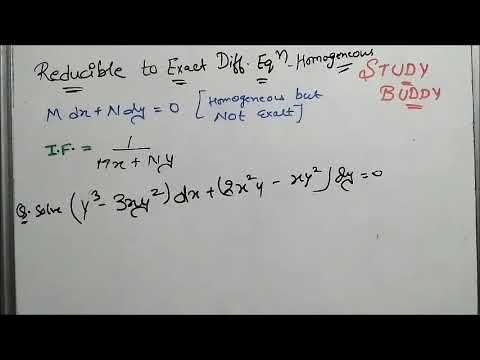 Reducible to Exact Diff. Eqⁿ - Homogeneous
STUDY
BUDDY
M dx + N dy = 0 [Homogeneous but
Not Exact]
I.F. = 1/(Mx + Ny)
Q. Solve (y³ - 3xy²) dx + (2x²y - xy²) dy = 0